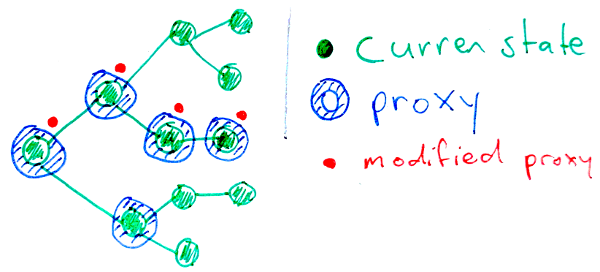 Curren state
proxy
modified proxy